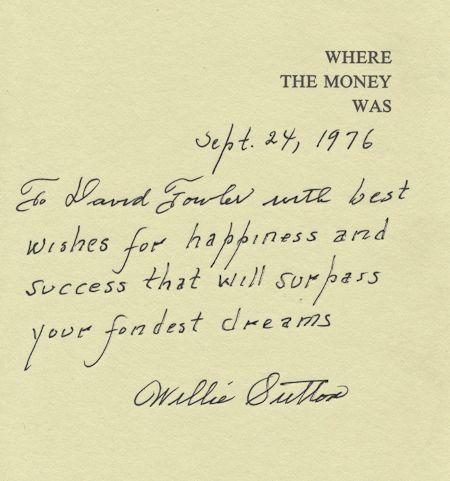 WHERE
THE MONEY
WAS
Sept. 24, 1976
To David Fowler with best
wishes for happiness and
success that will surpass
your fondest dreams
Willie Sutton